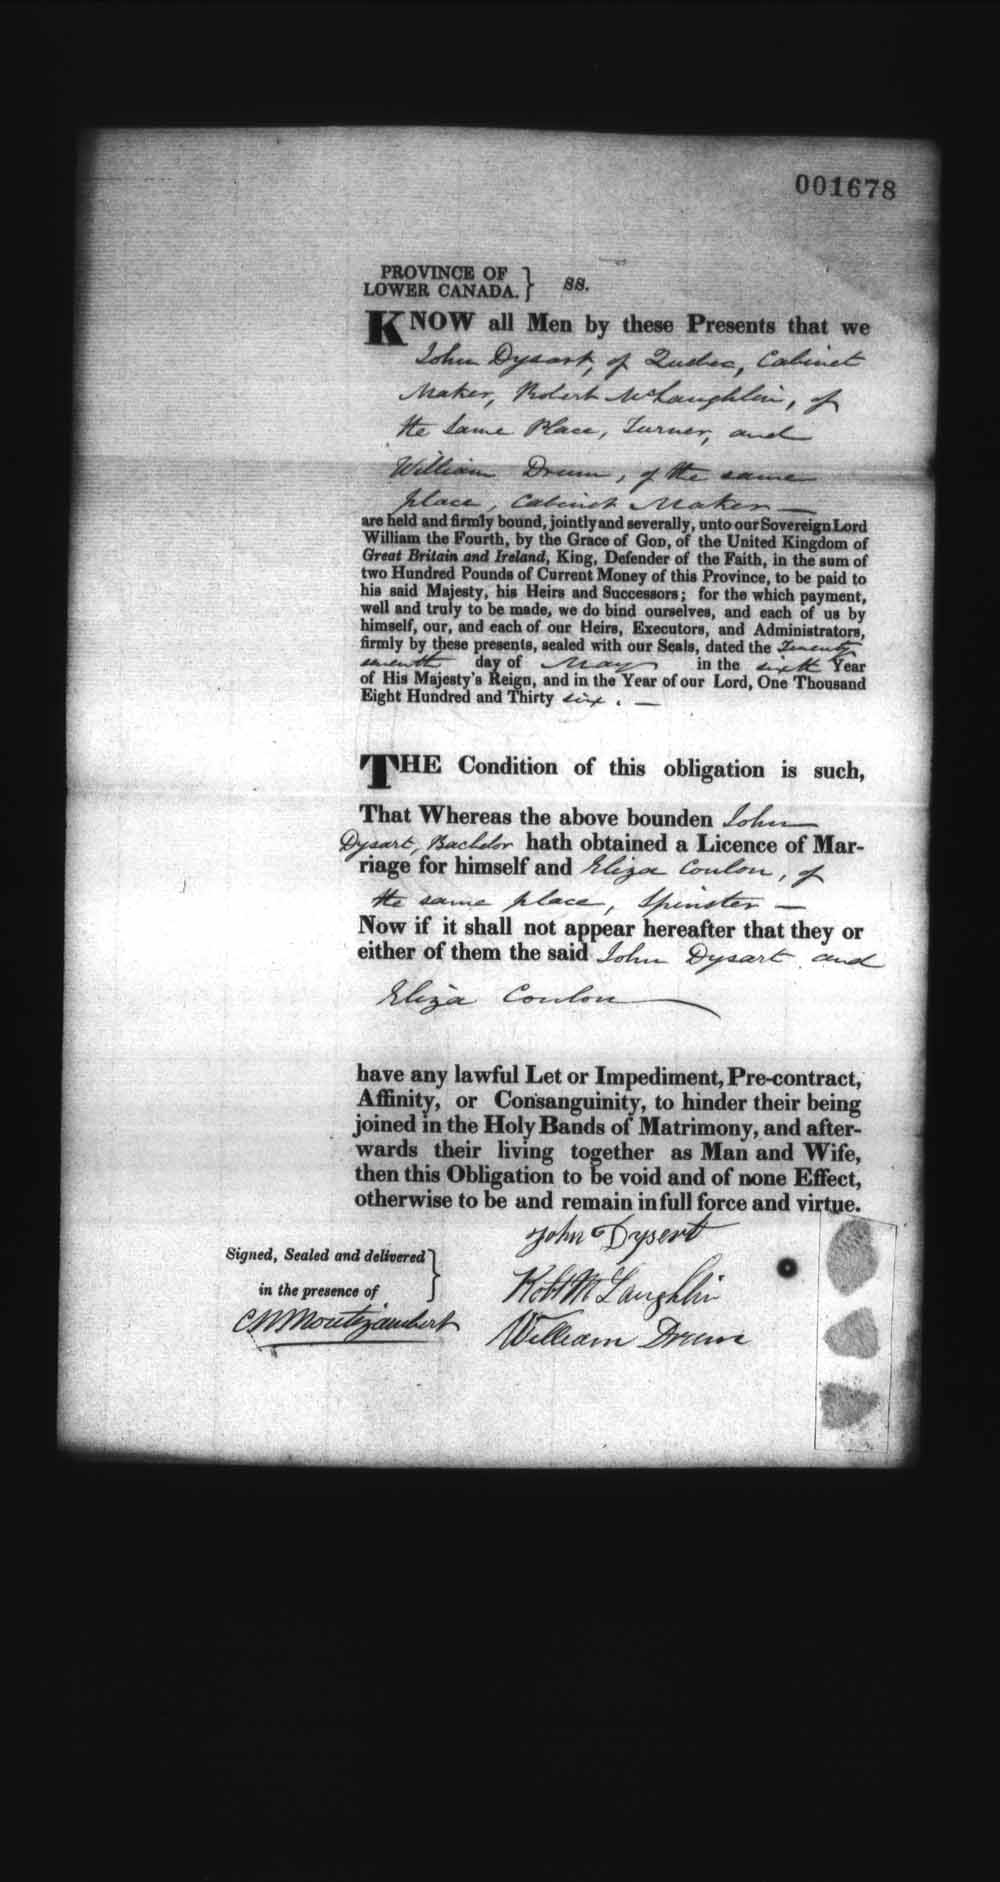 001678
PROVINCE OF
LOWER CANADA. } ss.
KNOW all Men by these Presents that we
John Dysart, of Quebec, Cabinet
Maker, Robert McLaughlin, of
the same Place, Turner, and
William Drum, of the same
place, Cabinet Maker —
are held and firmly bound, jointly and severally, unto our Sovereign Lord
William the Fourth, by the Grace of GOD, of the United Kingdom of
Great Britain and Ireland, King, Defender of the Faith, in the sum of
two Hundred Pounds of Current Money of this Province, to be paid to
his said Majesty, his Heirs and Successors; for the which payment,
well and truly to be made, we do bind ourselves, and each of us by
himself, our, and each of our Heirs, Executors, and Administrators,
firmly by these presents, sealed with our Seals, dated the Twenty
seventh day of May in the sixth Year
of His Majesty's Reign, and in the Year of our Lord, One Thousand
Eight Hundred and Thirty six. —
THE Condition of this obligation is such,
That Whereas the above bounden John
Dysart, Bachelor hath obtained a Licence of Mar-
riage for himself and Eliza Coulon, of
the same place, Spinster —
Now if it shall not appear hereafter that they or
either of them the said John Dysart and
Eliza Coulon
have any lawful Let or Impediment, Pre-contract,
Affinity, or Consanguinity, to hinder their being
joined in the Holy Bands of Matrimony, and after-
wards their living together as Man and Wife,
then this Obligation to be void and of none Effect,
otherwise to be and remain in full force and virtue.
John Dysert
Signed, Sealed and delivered }
in the presence of
Robt McLaughlin
C N Montizambert
William Drum